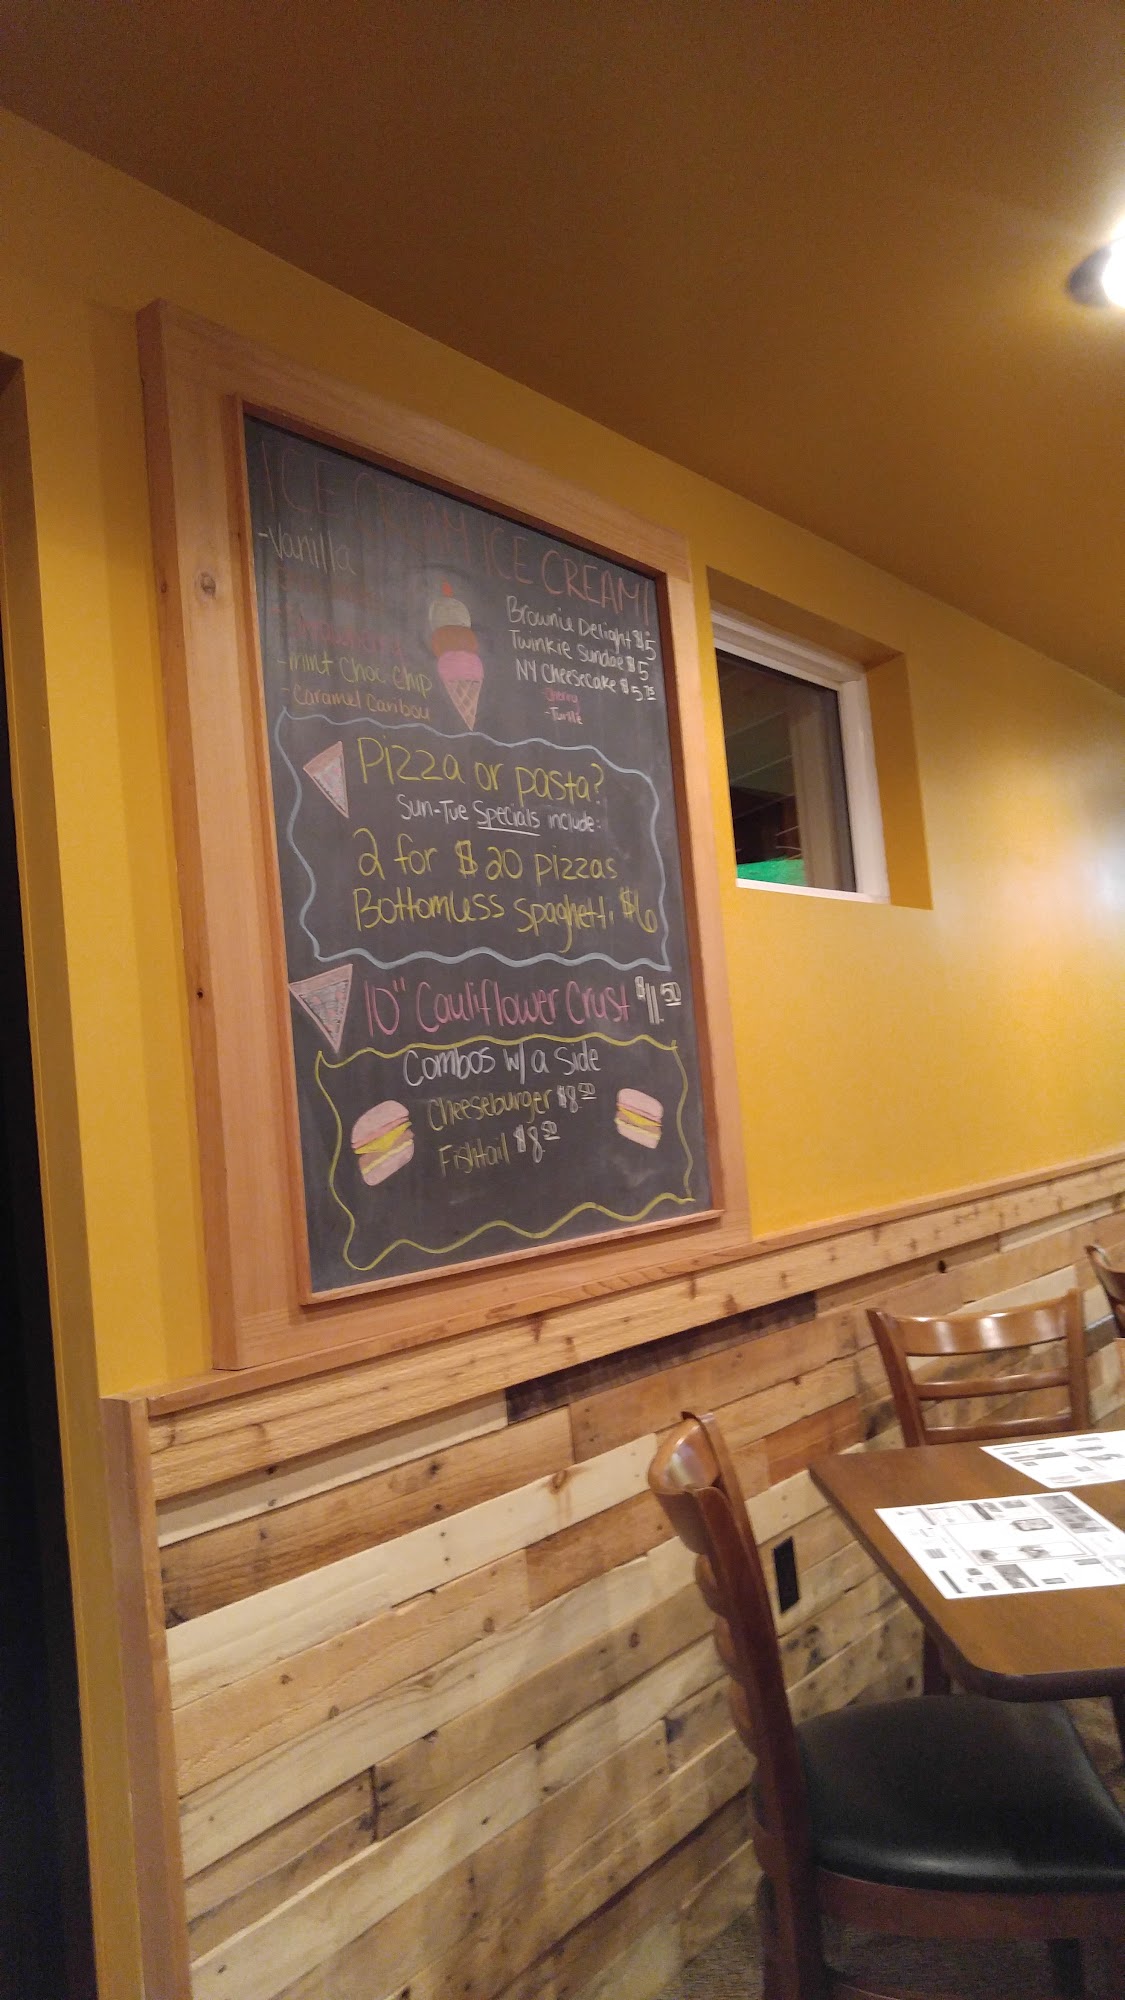 ICE CREAM ICE CREAM!
-Vanilla
-mint Choc. Chip
-Caramel Caribou
Brownie Delight $5
Twinkie Sundae $5
NY Cheesecake $5.75
-Cherry
-Turtle
Pizza or pasta?
Sun-Tue Specials include:
2 for $20 pizzas
Bottomless spaghetti $6
10" Cauliflower Crust $11.50
Combos w/ a side
Cheeseburger $8.50
Fishtail $8.50